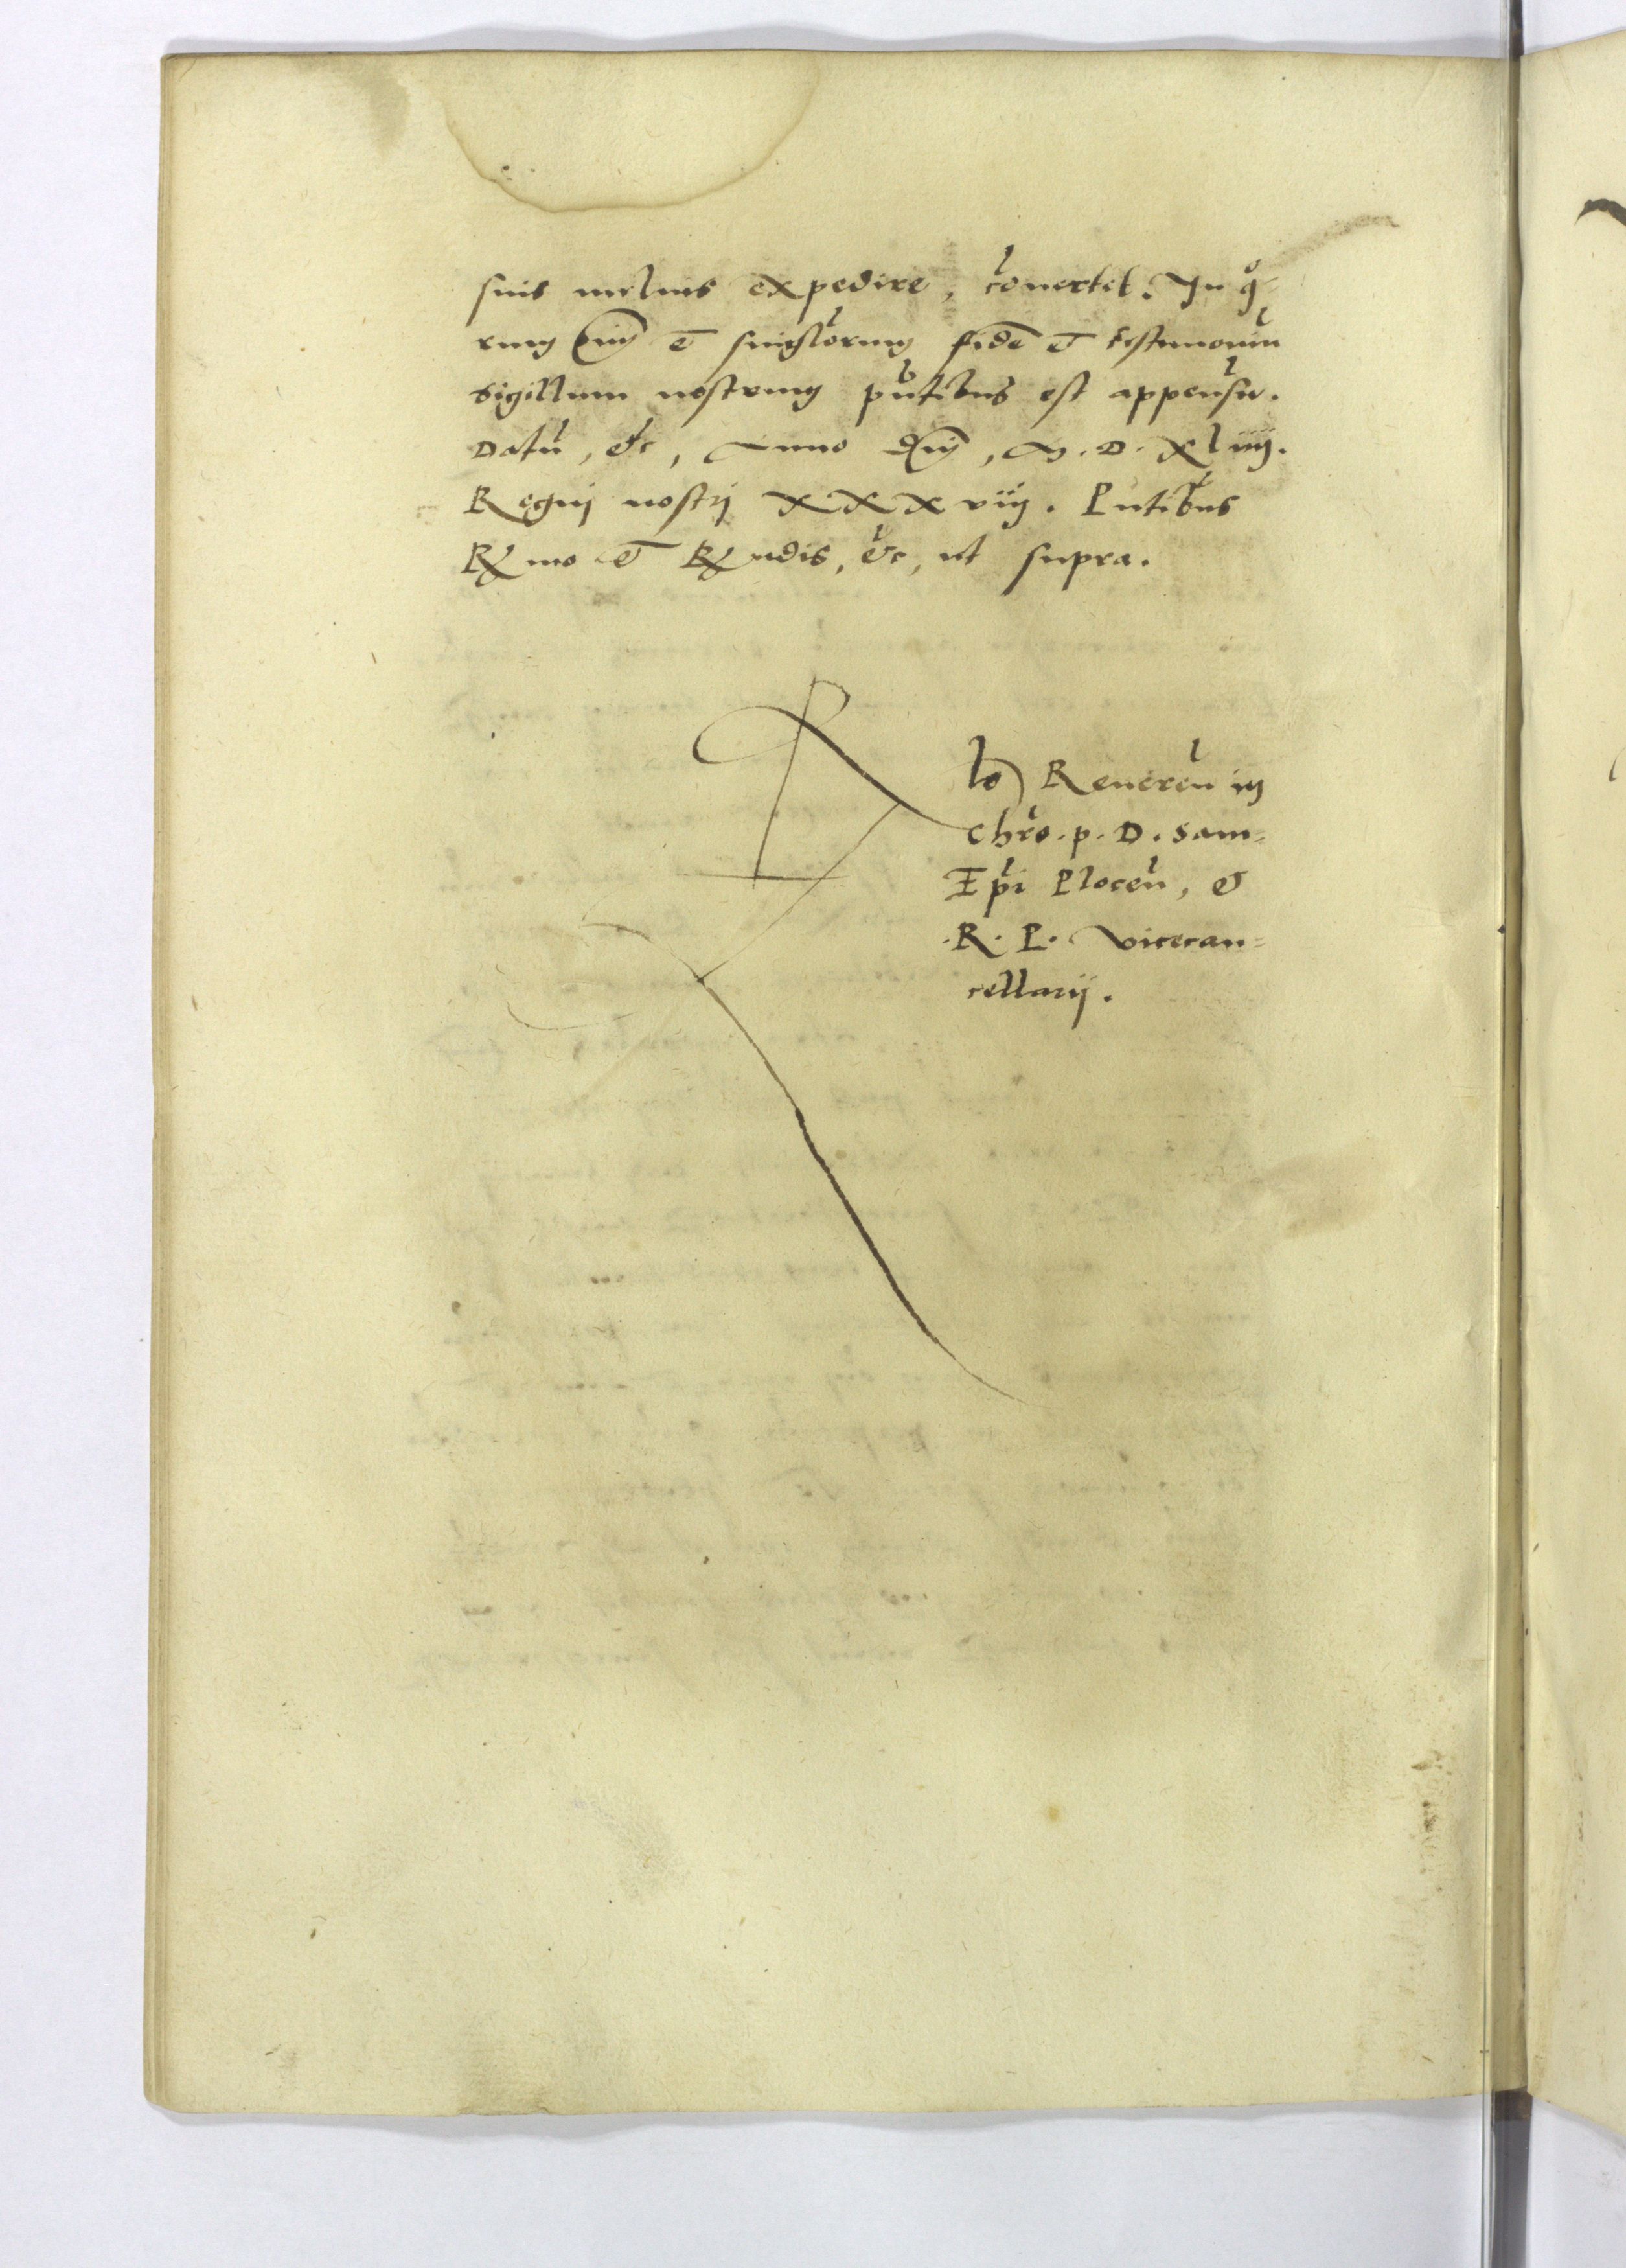 suis melius expedire, co̅vertet. In q̊-
rum om̅i et singlo̅rum fide̅ et testimoniu̅
Sigillum nostrum pn̅tibus est appensu̅.
Datu̅, etc, Anno Dn̅i, M. D. XLiiij.
Regnj nostrj XXXviij. Pn̅tibus
Rmo et Rndis, etc, ut supra.
Reveren̅ in
Chr̅o. p. D. Sam-
Ep̅i Plocen̅, et
.R. P. Vicecan-
cellarij.